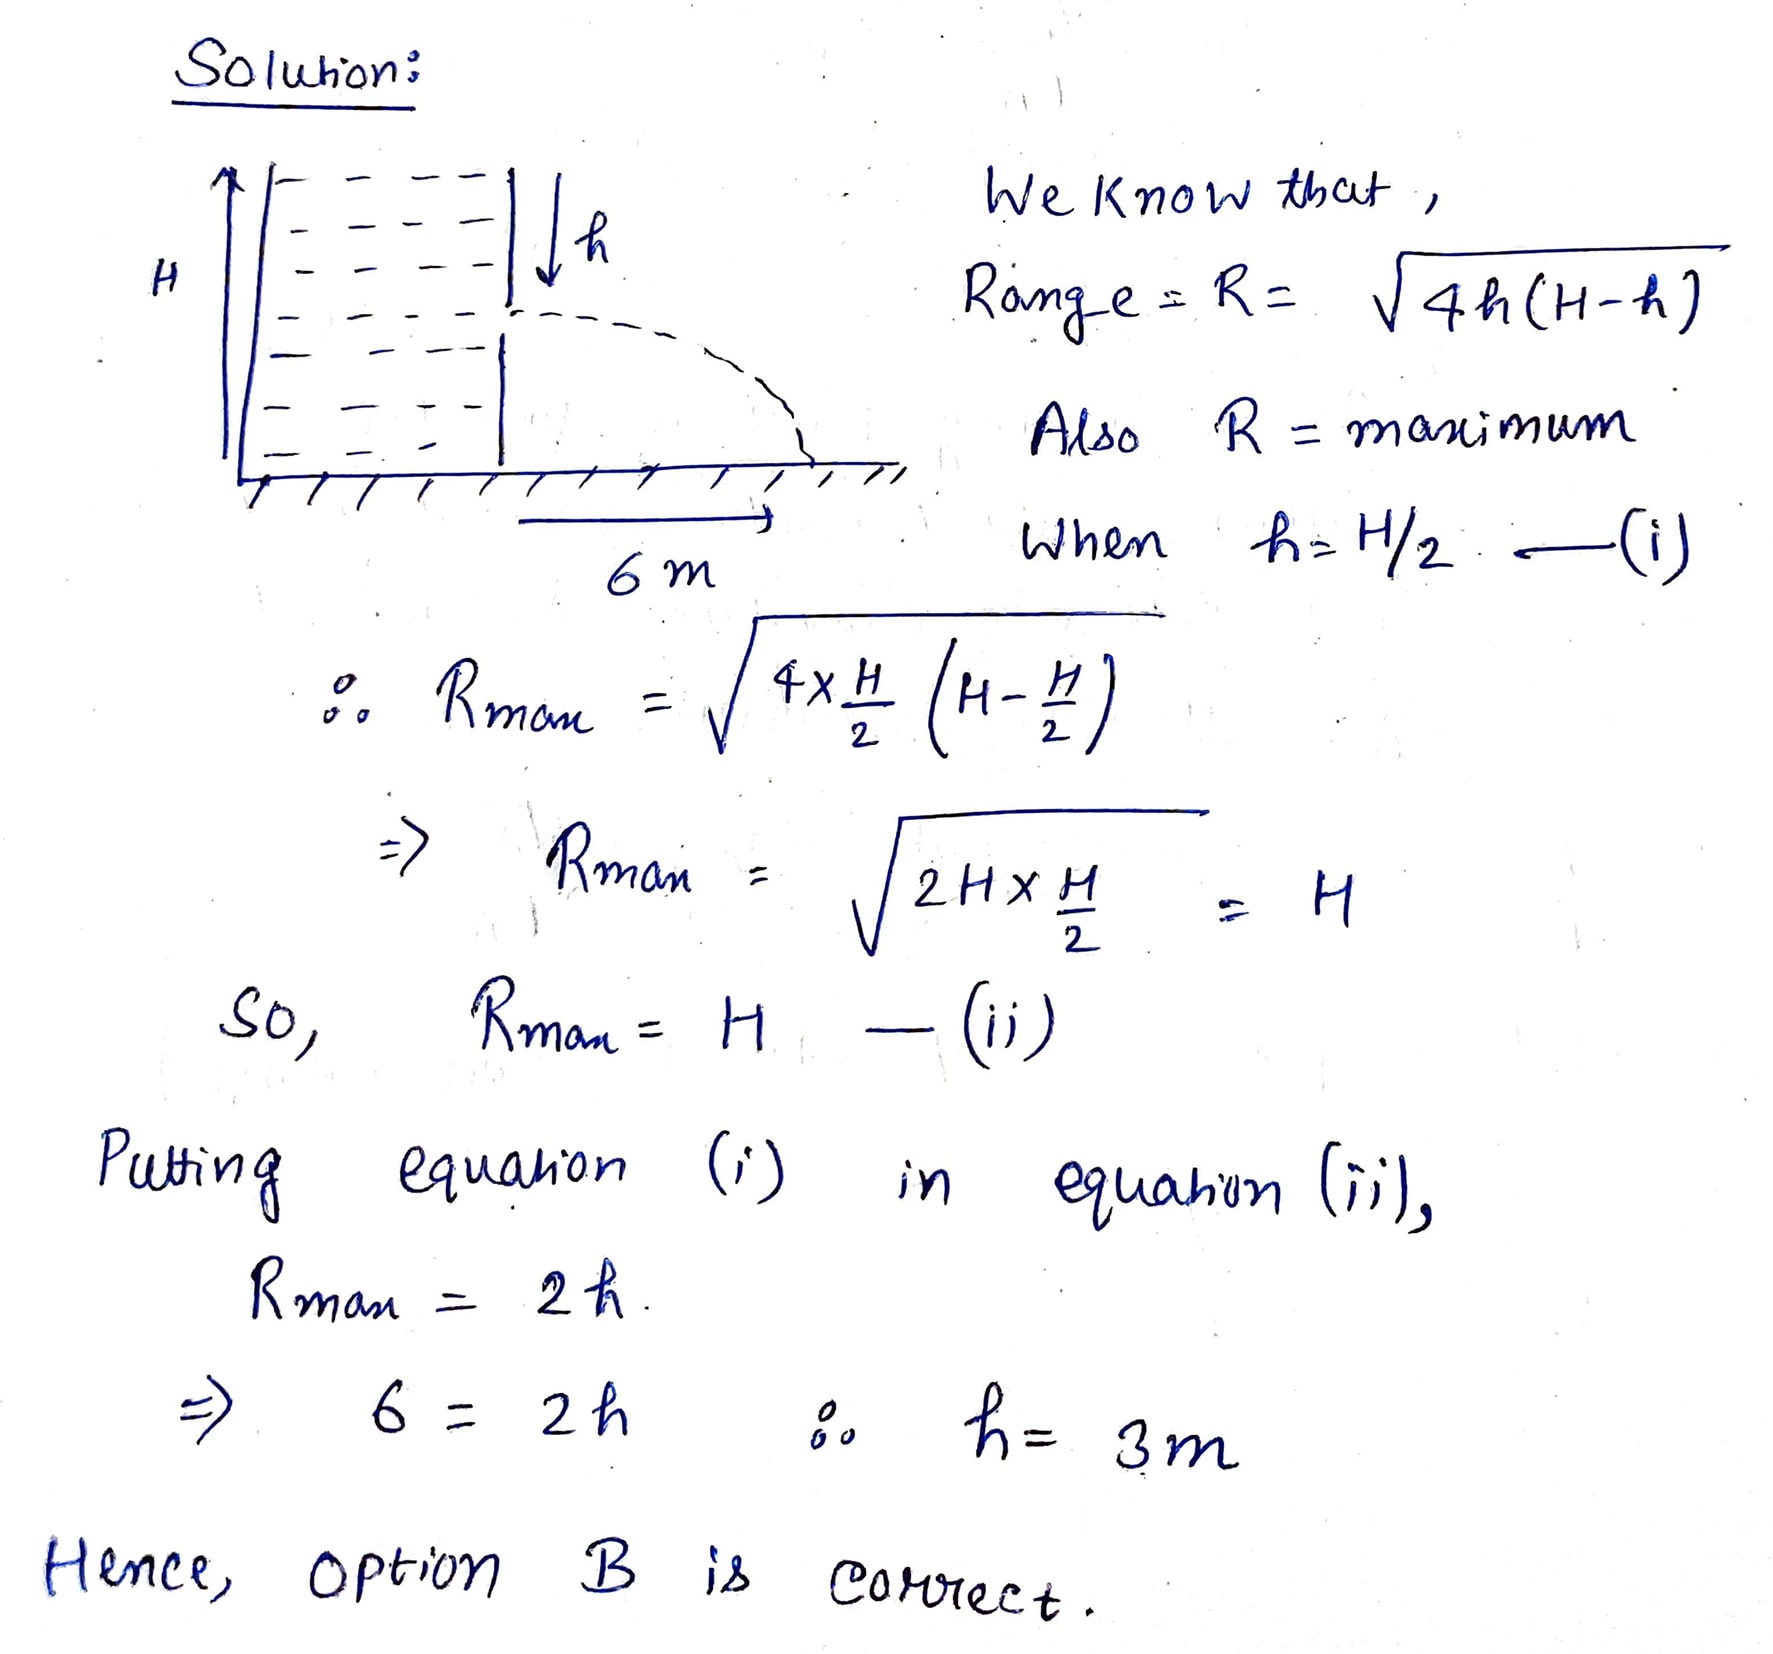 Solution:
H
h
6 m
We know that,
Range = R = √4h(H-h)
Also R = maximum
When h = H/2 —(i)
∴ Rmax = √4×H/2 (H-H/2)
⇒ Rmax = √2H×H/2 = H
So, Rmax = H —(ii)
Putting equation (i) in equation (ii),
Rmax = 2h.
⇒ 6 = 2h ∴ h = 3m
Hence, option B is correct.